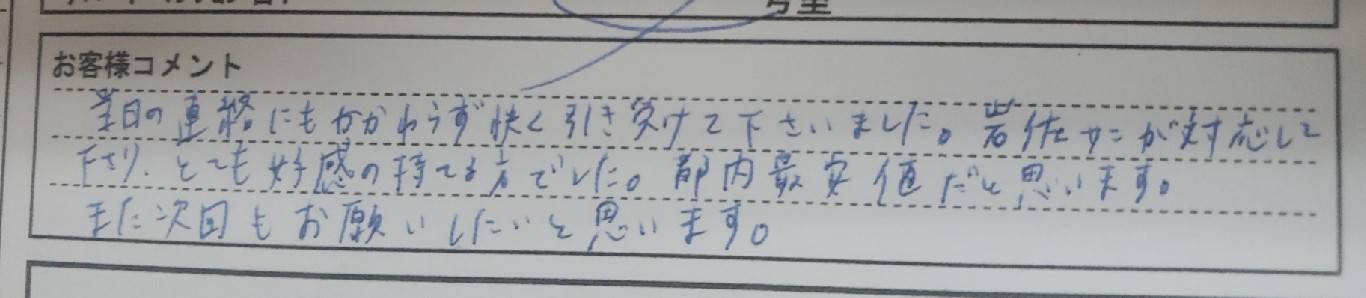 お客様コメント
当日の連絡にもかかわらず快く引き受けて下さいました。岩佐サンが対応して
下さり、とても好感の持てる方でした。都内最安値だと思います。
また次回もお願いしたいと思います。